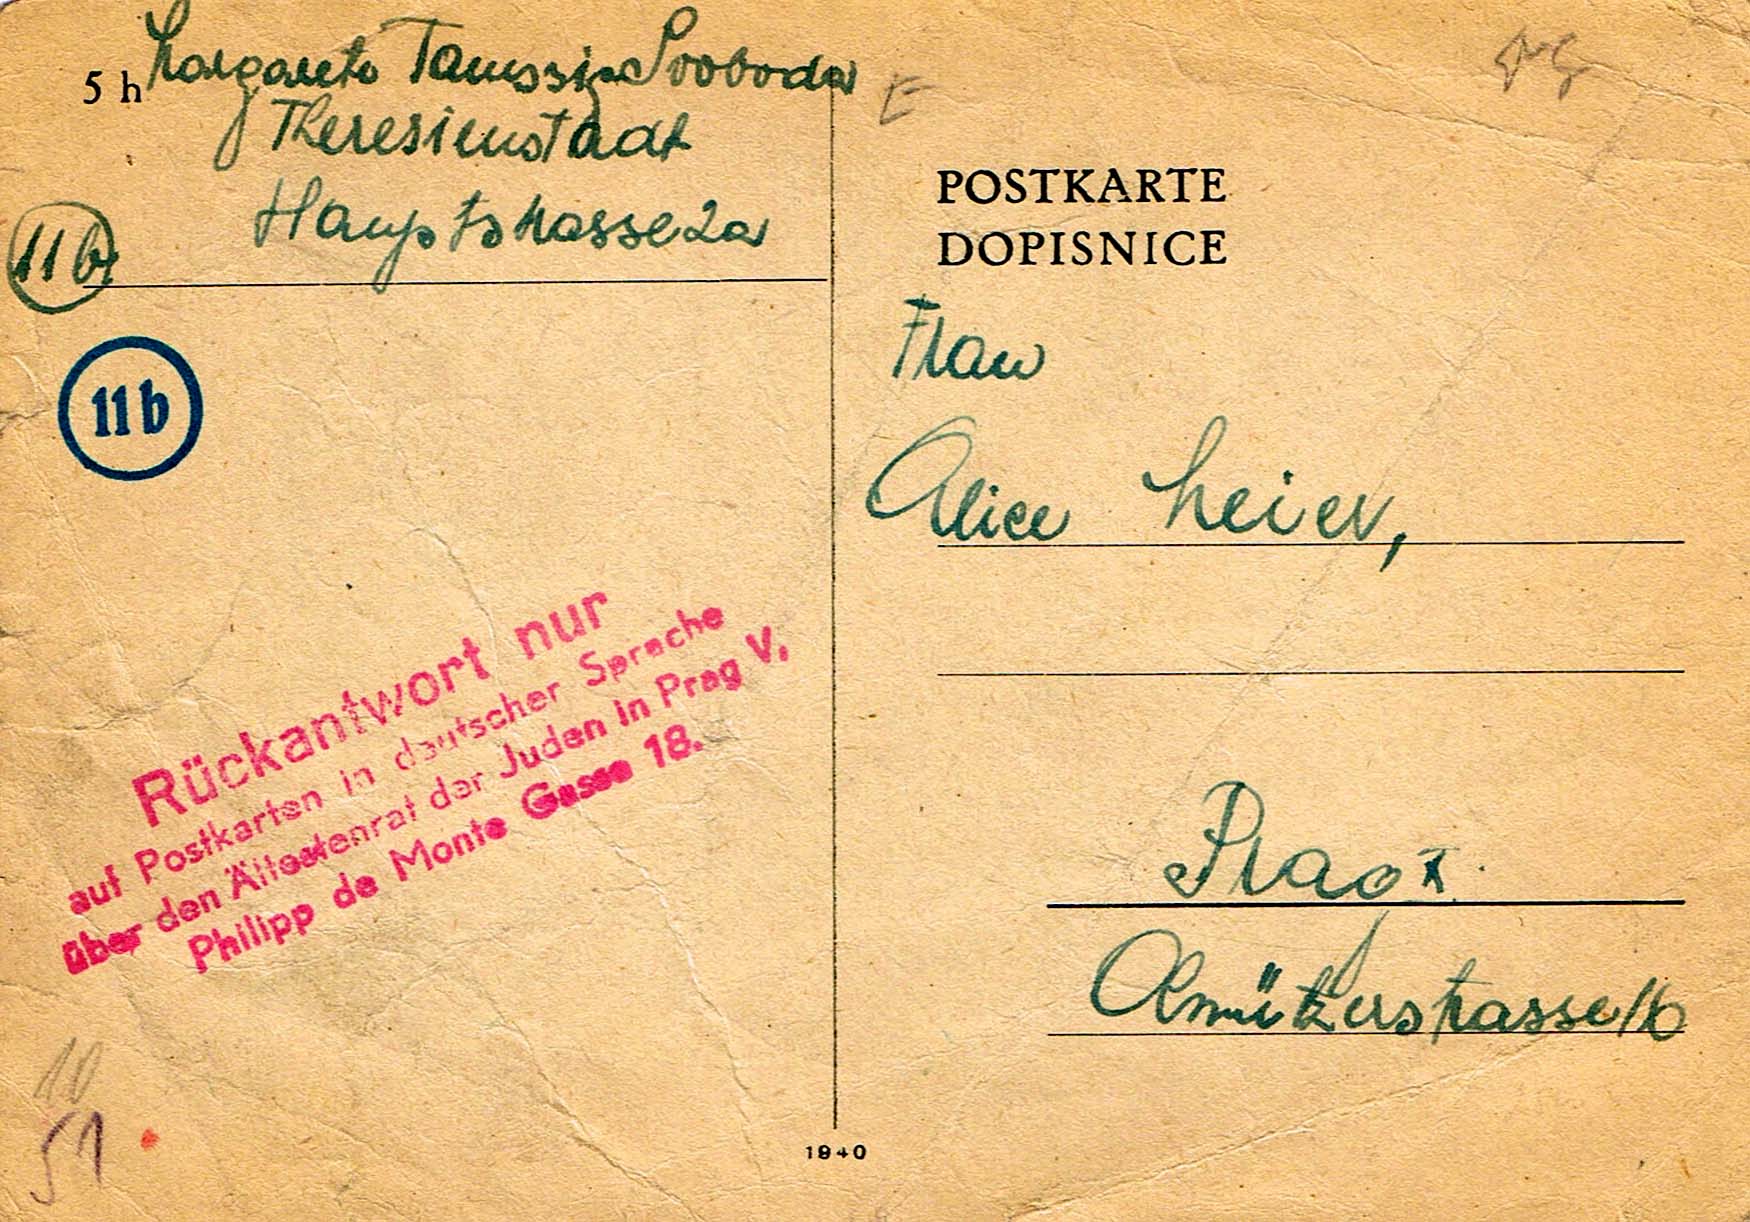 5 h Margarete Taussig Svoboda
Theresienstadt
Hauptstrasse 2a
11 b
11 b
Rückantwort nur
auf Postkarten in deutscher Sprache
über den Ältestenrat der Juden in Prag V.
Philipp de Monte Gasse 18.
51
E
POSTKARTE
DOPISNICE
Frau
Alice Leier,
Prag X.
Olmützerstrasse 16
1940